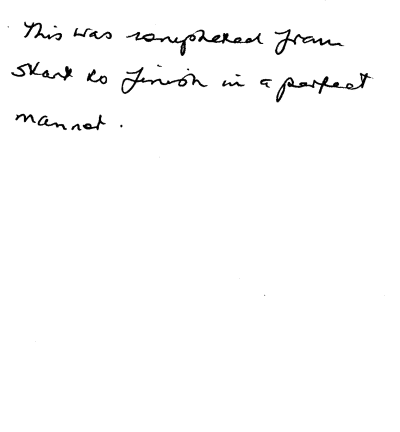 This was completed from
start to finish in a perfect
manner.